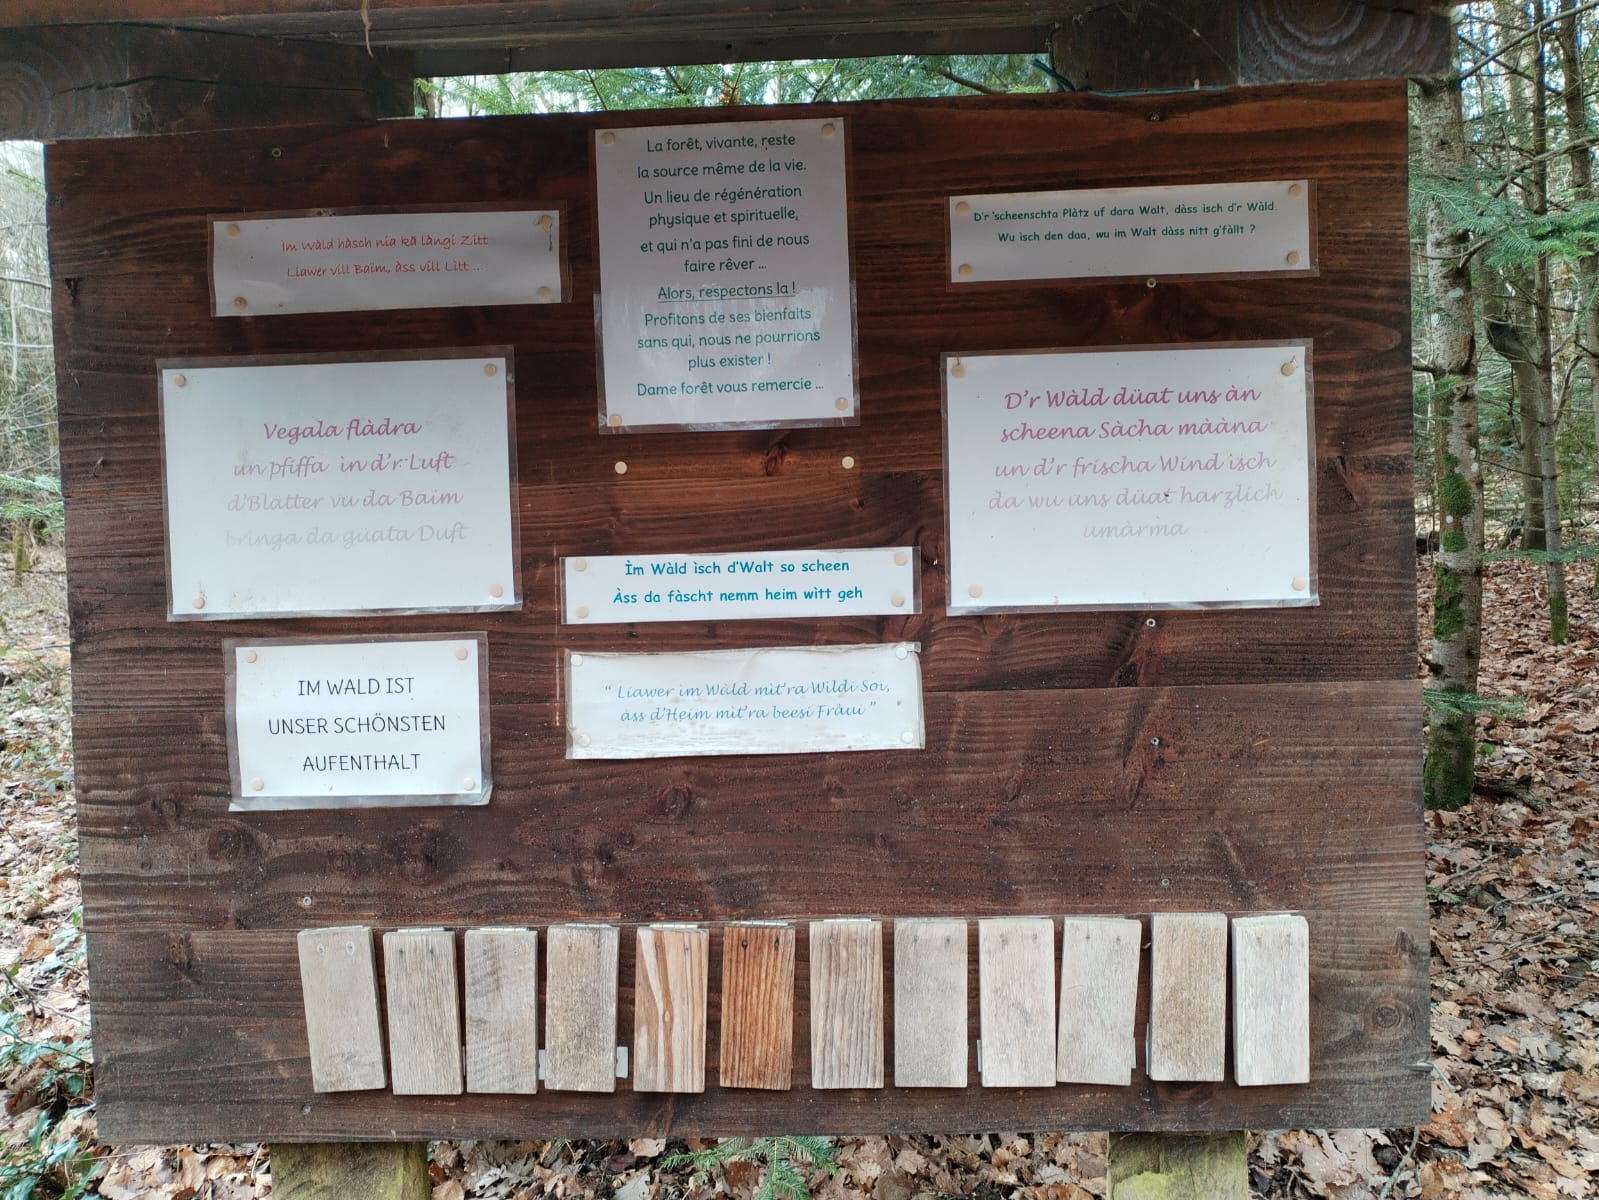 La forêt, vivante, reste
la source même de la vie.
Un lieu de régénération
physique et spirituelle,
et qui n'a pas fini de nous
faire rêver ...
Alors, respectons la !
Profitons de ses bienfaits
sans qui, nous ne pourrions
plus exister !
Dame forêt vous remercie ...
Ìm Wàld hàsch nia kä làngi Zitt
Liawer vill Baïm, àss vill Litt ...
D'r 'scheenschta Plàtz uf dara Walt, dàss ìsch d'r Wàld.
Wu ìsch den daa, wu im Walt dàss nitt g'fàllt ?
Vegala flàdra
un pfiffa in d'r Luft
d'Blätter vu da Baïm
bringa da güata Duft
D'r Wàld düat uns àn
scheena Sàcha mààna
un d'r frischa Wind isch
da wu uns düat harzlich
umàrma
Ìm Wàld ìsch d'Walt so scheen
Àss da fàscht nemm heim wìtt geh
IM WALD IST
UNSER SCHÖNSTEN
AUFENTHALT
" Liawer im Wàld mìt'ra Wildi Soi,
àss d'Heim mìt'ra beesi Fràui "